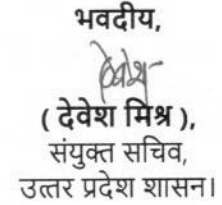 भवदीय,
( देवेश मिश्र ),
संयुक्त सचिव,
उत्तर प्रदेश शासन।